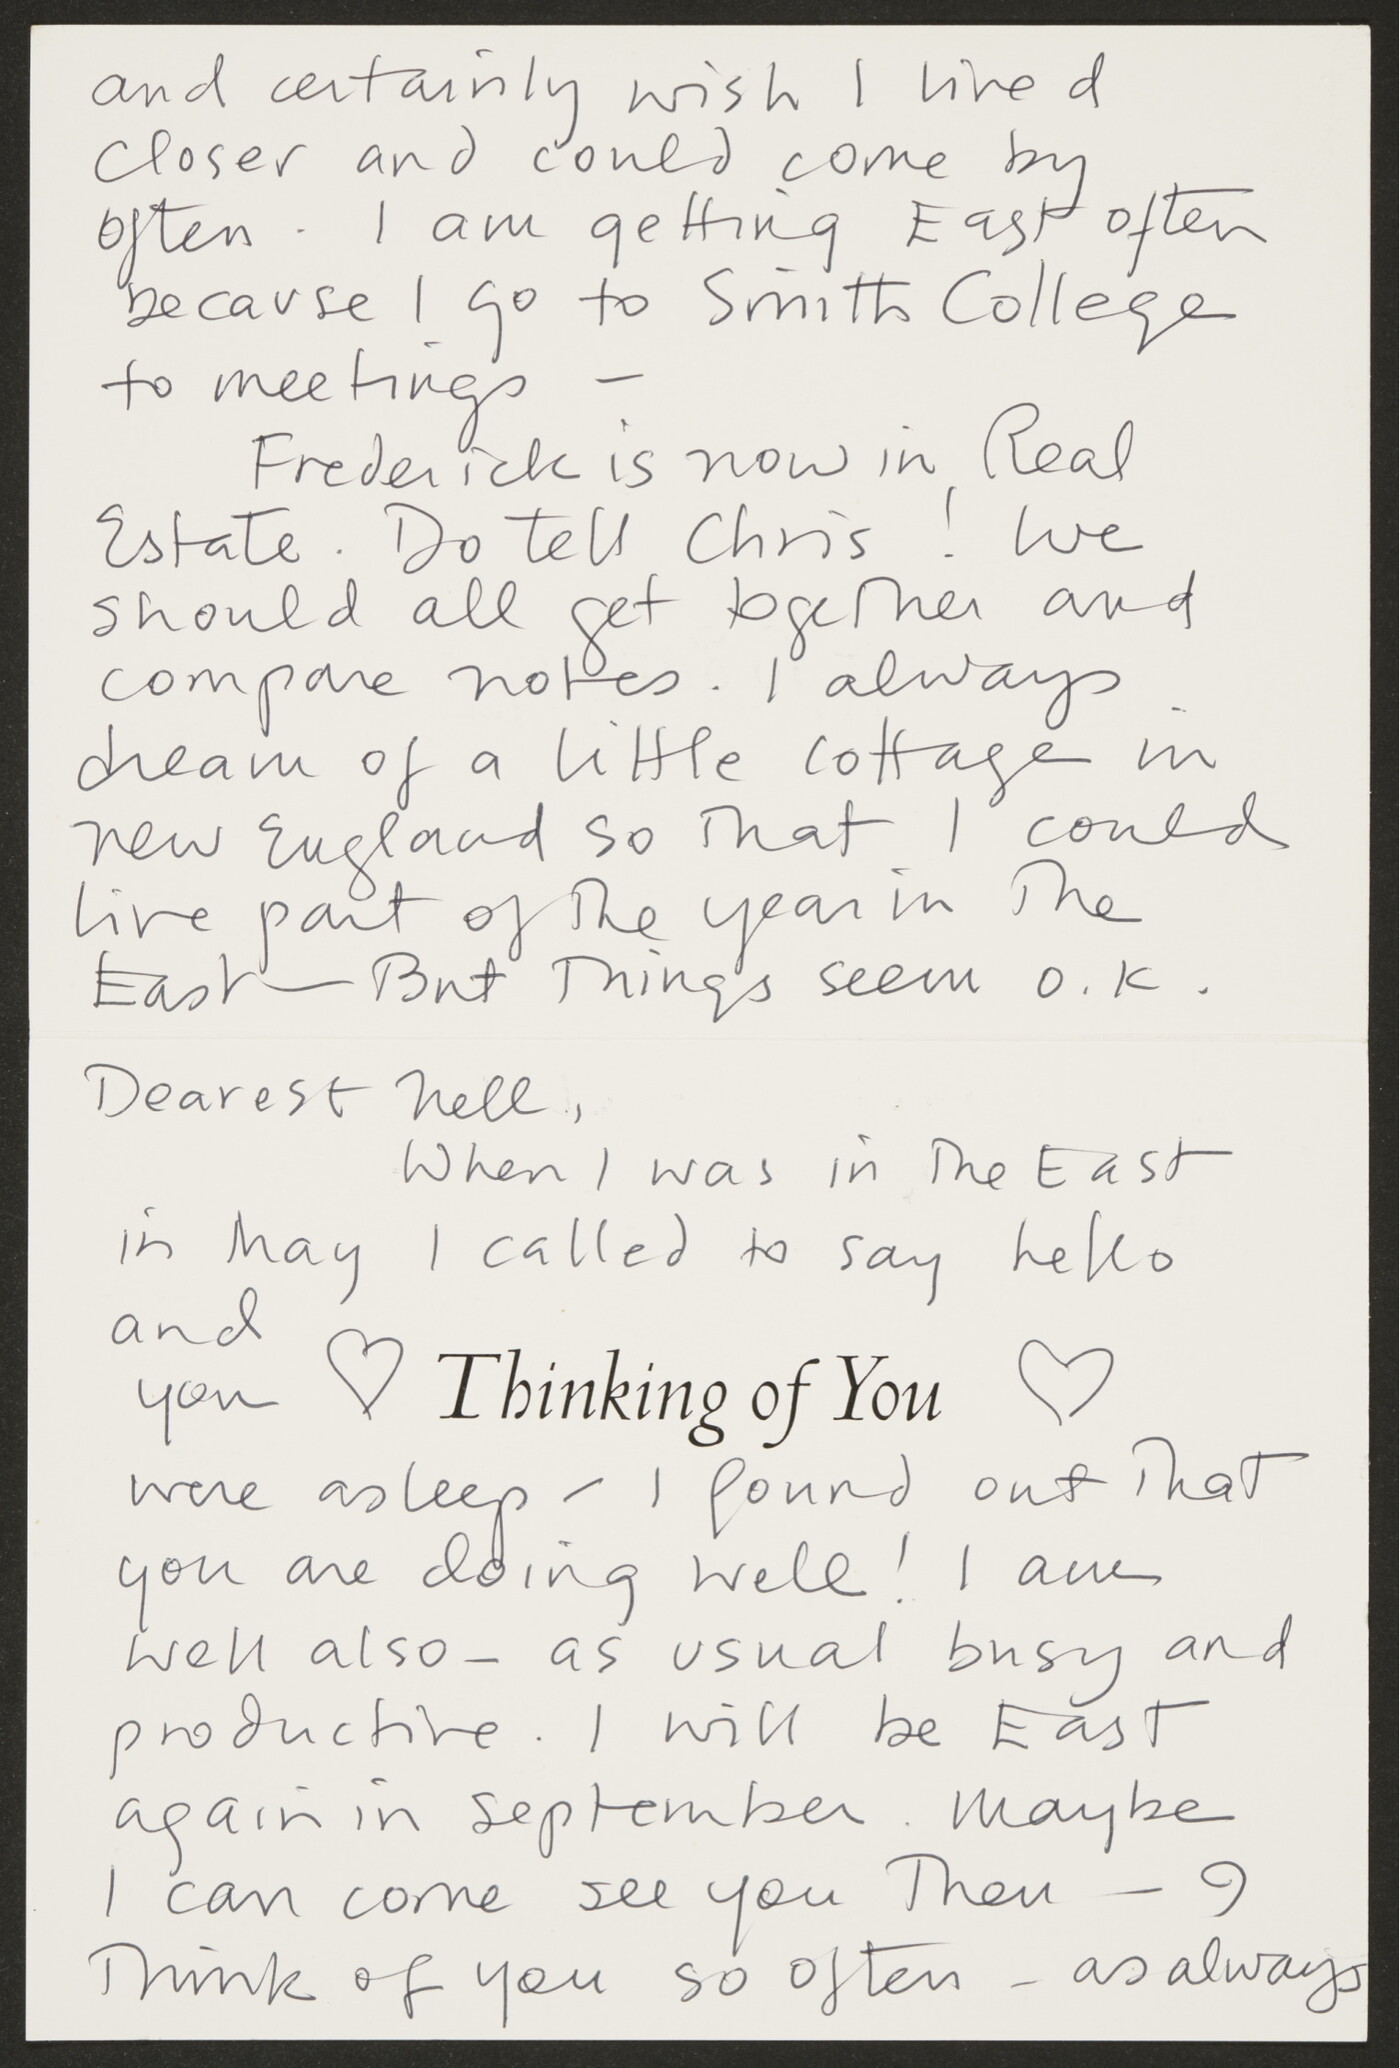 and certainly wish I lived
closer and could come by
often. I am getting East often
because I go to Smith College
to meetings —
Frederick is now in Real
Estate. Do tell Chris! We
should all get together and
compare notes. I always
dream of a little cottage in
new England so that I could
live part of the year in the
East — But Things seem o.k.
Dearest Nell,
When I was in the East
in May I called to say hello
and
you ♡ Thinking of You ♡
were asleep – I found out That
you are doing well! I am
well also – as usual busy and
productive. I will be East
again in September. Maybe
I can come see you Then — I
Think of you so often – as always